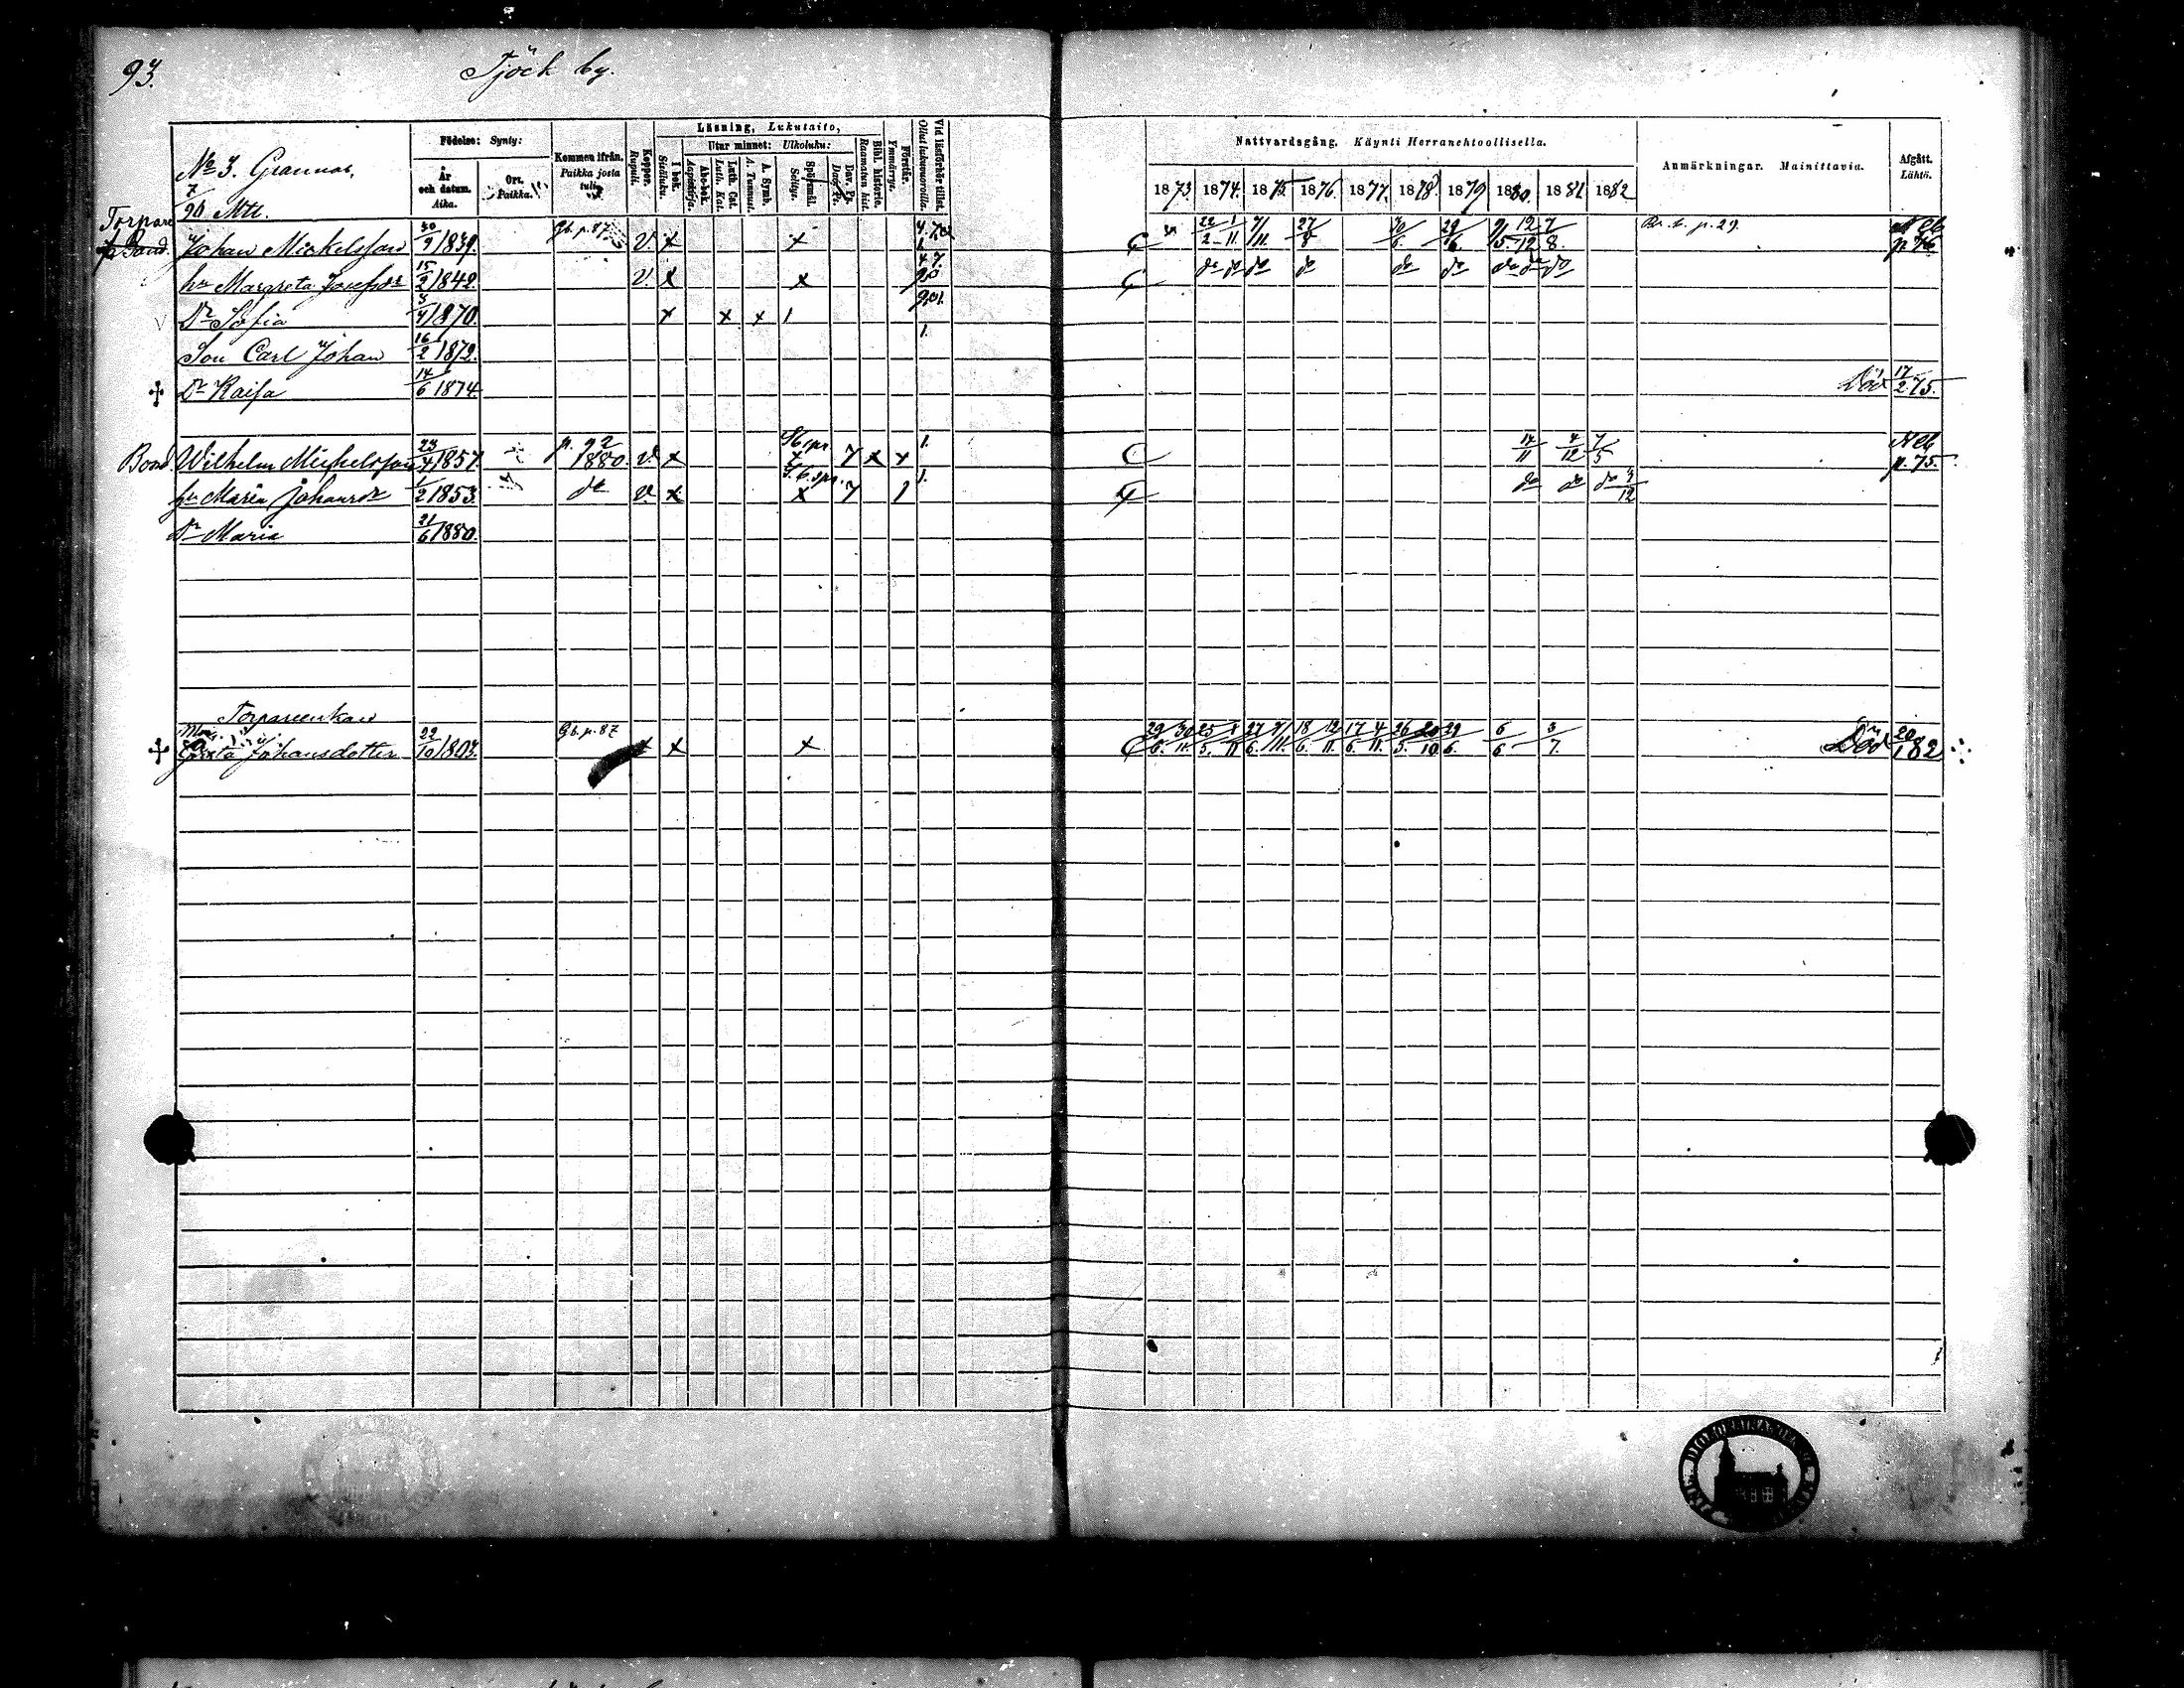 93.
Tjöck by.
No 3. Grannas,
7/96 Mtl.
Födelse: Synty:
År och datum. Aika.
Ort. Paikka.
Kommen ifrån. Paikka josta tuli.
Koppor. Rupuli.
Läsning, Lukutaito,
I bok. Sisäluku.
Utur minnet: Ulkoluku:
Abc-bok. Aapiskirja.
Luth. Cat. Luth. Kat.
A. Symb. A. Tunnust.
Spörsmål. Selitys.
Dav. Ps. Dav. Ps.
Bibl. historie. Raamatun hist.
Förstår. Ymmärrys.
Vid läsförhör tillst. Ollut lukuvuoroilla.
Nattvardsgång. Käynti Herranehtoollisella.
1873. 1874. 1875 1876. 1877. 1878 1879 1880. 1881 1882
Anmärkningar. Mainittavia.
Afgått. Lähtö.
Torpare
Johan Mickelsson 30/9 1839. Gb. p. 87 v. x x 22/2 1/11 27/8 30/6 29/6 12/12 7/8 p. 29. N Cb p 76
hu Margreta Josefsdr 15/2 1842. v. x x do do do do do do do do do
Dr Sofia 3/4 1870. x x x 1
Son Carl Johan 16/2 1872. 1.
Dr Kaisa 14/6 1874. Död 17/2 75.
Bond. Wilhelm Michelsson 23/4 1857. p. 92 1880. v. x 7 x x 1. 14/11 4/12 7/5 N Cb p. 75.
hu Maria Johansdr 1/2 1853. do v. x x 7 1 1. do do do 3/12
Dr Maria 21/6 1880.
Torpareenkan
Greta Johansdotter 22/10 1803. Gb. p. 87 x x x 29/6. 30/11 25/5. 27/6. 18/6. 12/11. 17/6. 4/11. 26/5. 20/10 29/6. 6/6 3/7. Död 20/1 82